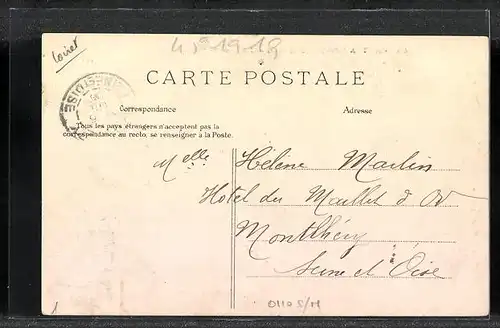 Loiret
CARTE POSTALE
Correspondance
Adresse
Tous les pays étrangers n'acceptent pas la
correspondance au recto, se renseigner à la Poste.
Melle Hélène Martin
Hotel du Maillet d Or
Montlhéry
Seine et Oise
0110 S/M